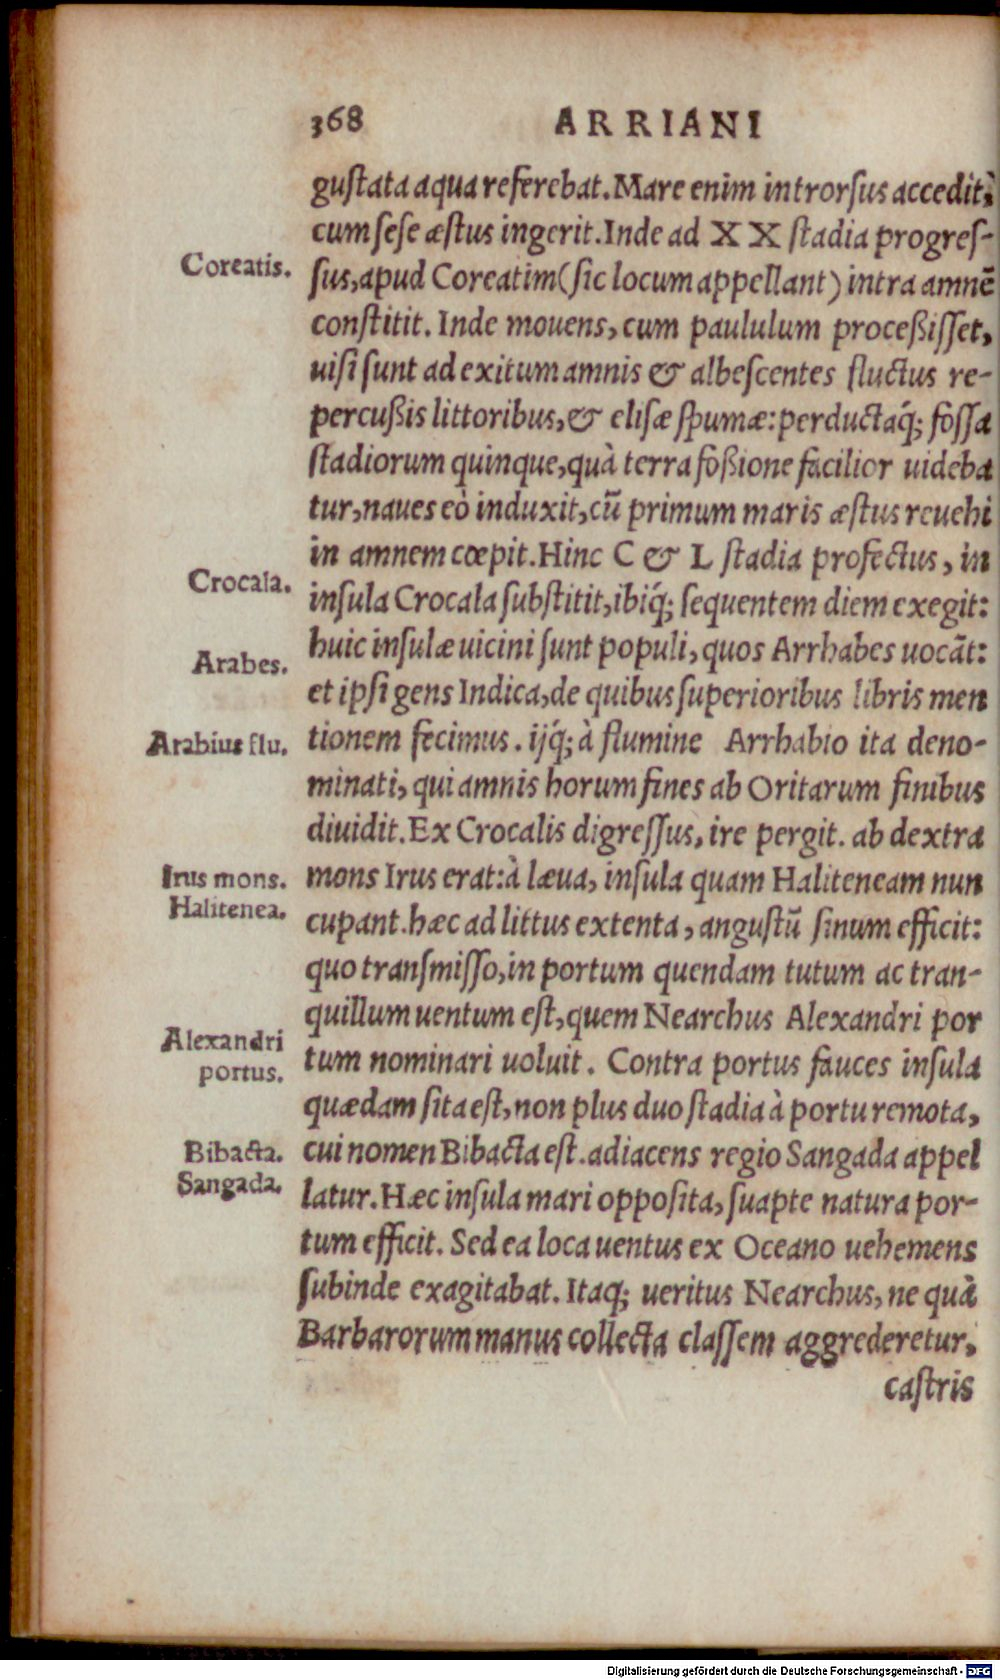 368 ARRIANI
gustata aqua referebat. Mare enim introrsus accedit,
cum sese æstus ingerit. Inde ad XX stadia progres-
Coreatis.
sus, apud Coreatim (sic locum appellant) intra amnē
constitit. Inde mouens, cum paululum proceßisset,
uisi sunt ad exitum amnis & albescentes fluctus re-
percußis littoribus, & elisæ spumæ: perductaq́; fossa
stadiorum quinque, quà terra foßione facilior uideba
tur, naues eò induxit, cū primum maris æstus reuehi
in amnem cœpit. Hinc C & L stadia profectus, in
Crocala.
insula Crocala substitit, ibiq́; sequentem diem exegit:
huic insulæ uicini sunt populi, quos Arrhabes uocāt:
Arabes.
et ipsi gens Indica, de quibus superioribus libris men
Arabius flu.
tionem fecimus. ijq́; à flumine Arrhabio ita deno-
minati, qui amnis horum fines ab Oritarum finibus
diuidit. Ex Crocalis digressus, ire pergit. ab dextra
Irus mons.
mons Irus erat: à læua, insula quam Haliteneam nun
Halitenea.
cupant. hæc ad littus extenta, angustū sinum efficit:
quo transmisso, in portum quendam tutum ac tran-
quillum uentum est, quem Nearchus Alexandri por
Alexandri
portus.
tum nominari uoluit. Contra portus fauces insula
quædam sita est, non plus duo stadia à portu remota,
Bibacta.
cui nomen Bibacta est. adiacens regio Sangada appel
Sangada.
latur. Hæc insula mari opposita, suapte natura por-
tum efficit. Sed ea loca uentus ex Oceano uehemens
subinde exagitabat. Itaq; ueritus Nearchus, ne quà
Barbarorum manus collecta classem aggrederetur,
castris
Digitalisierung gefördert durch die Deutsche Forschungsgemeinschaft - DFG